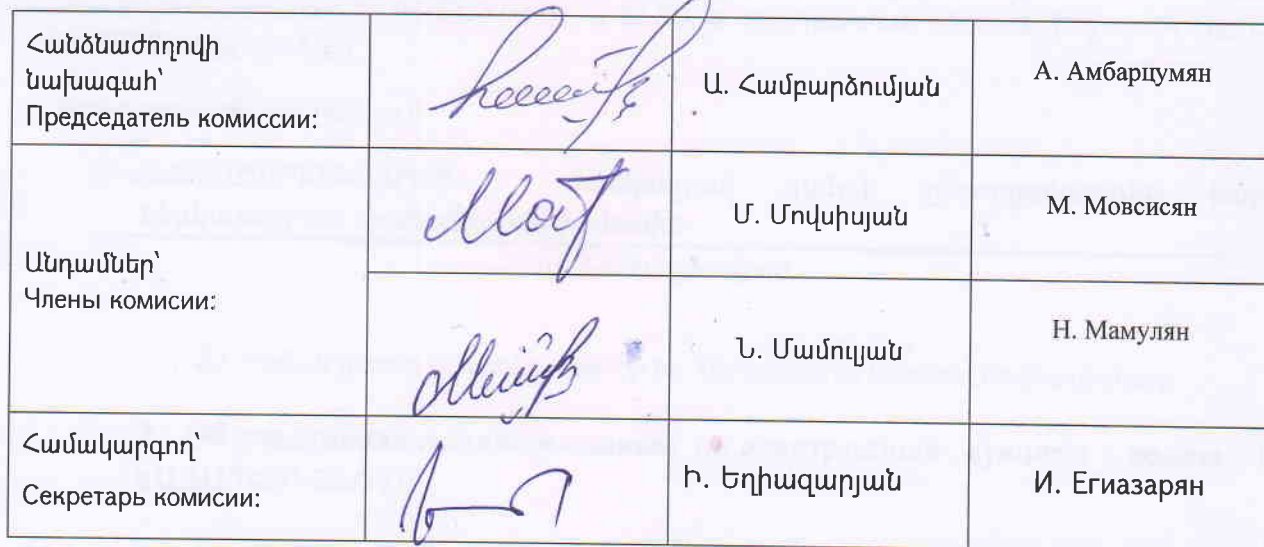 Հանձնաժողովի
նախագահ՝
Председатель комиссии:
Ա. Համբարձումյան
А. Амбарцумян
Անդամներ՝
Члены комисии:
Մ. Մովսիսյան
М. Мовсисян
Ն. Մամուլյան
Н. Мамулян
Համակարգող՝
Секретарь комисии:
Ի. Եղիազարյան
И. Егиазарян